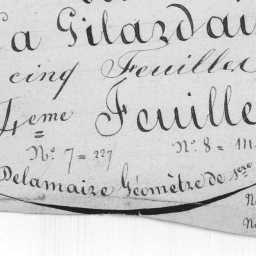 La Gilardai
cinq Feuilles
4eme Feuille
N.° 7 = 227 N.° 8 = 111
Delamaire Géomètre de 1ere
N
N